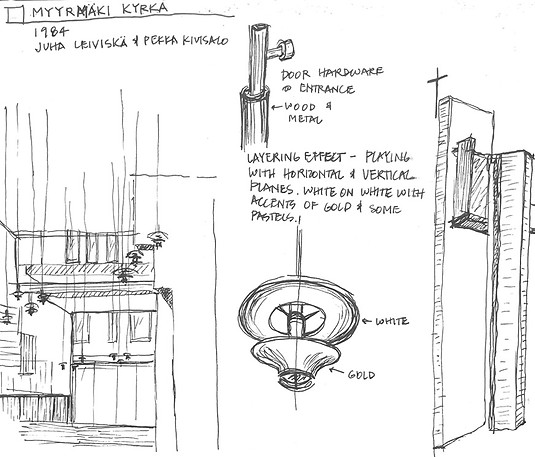 MYYRMÄKI KYRKA
1984
JUHA LEIVISKÄ & PEKKA KIVISALO
DOOR HARDWARE
@ ENTRANCE
WOOD &
METAL
LAYERING EFFECT - PLAYING
WITH HORIZONTAL & VERTICAL
PLANES. WHITE ON WHITE WITH
ACCENTS OF GOLD & SOME
PASTELS.
WHITE
GOLD